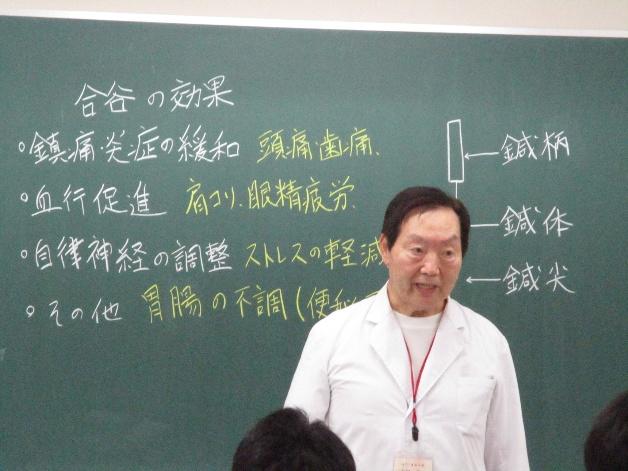 合谷の効果
・鎮痛炎症の緩和 頭痛歯痛.
・血行促進 肩コリ.眼精疲労.
・自律神経の調整 ストレスの軽減
・その他 胃腸の不調(便秘
鍼柄
鍼体
鍼尖